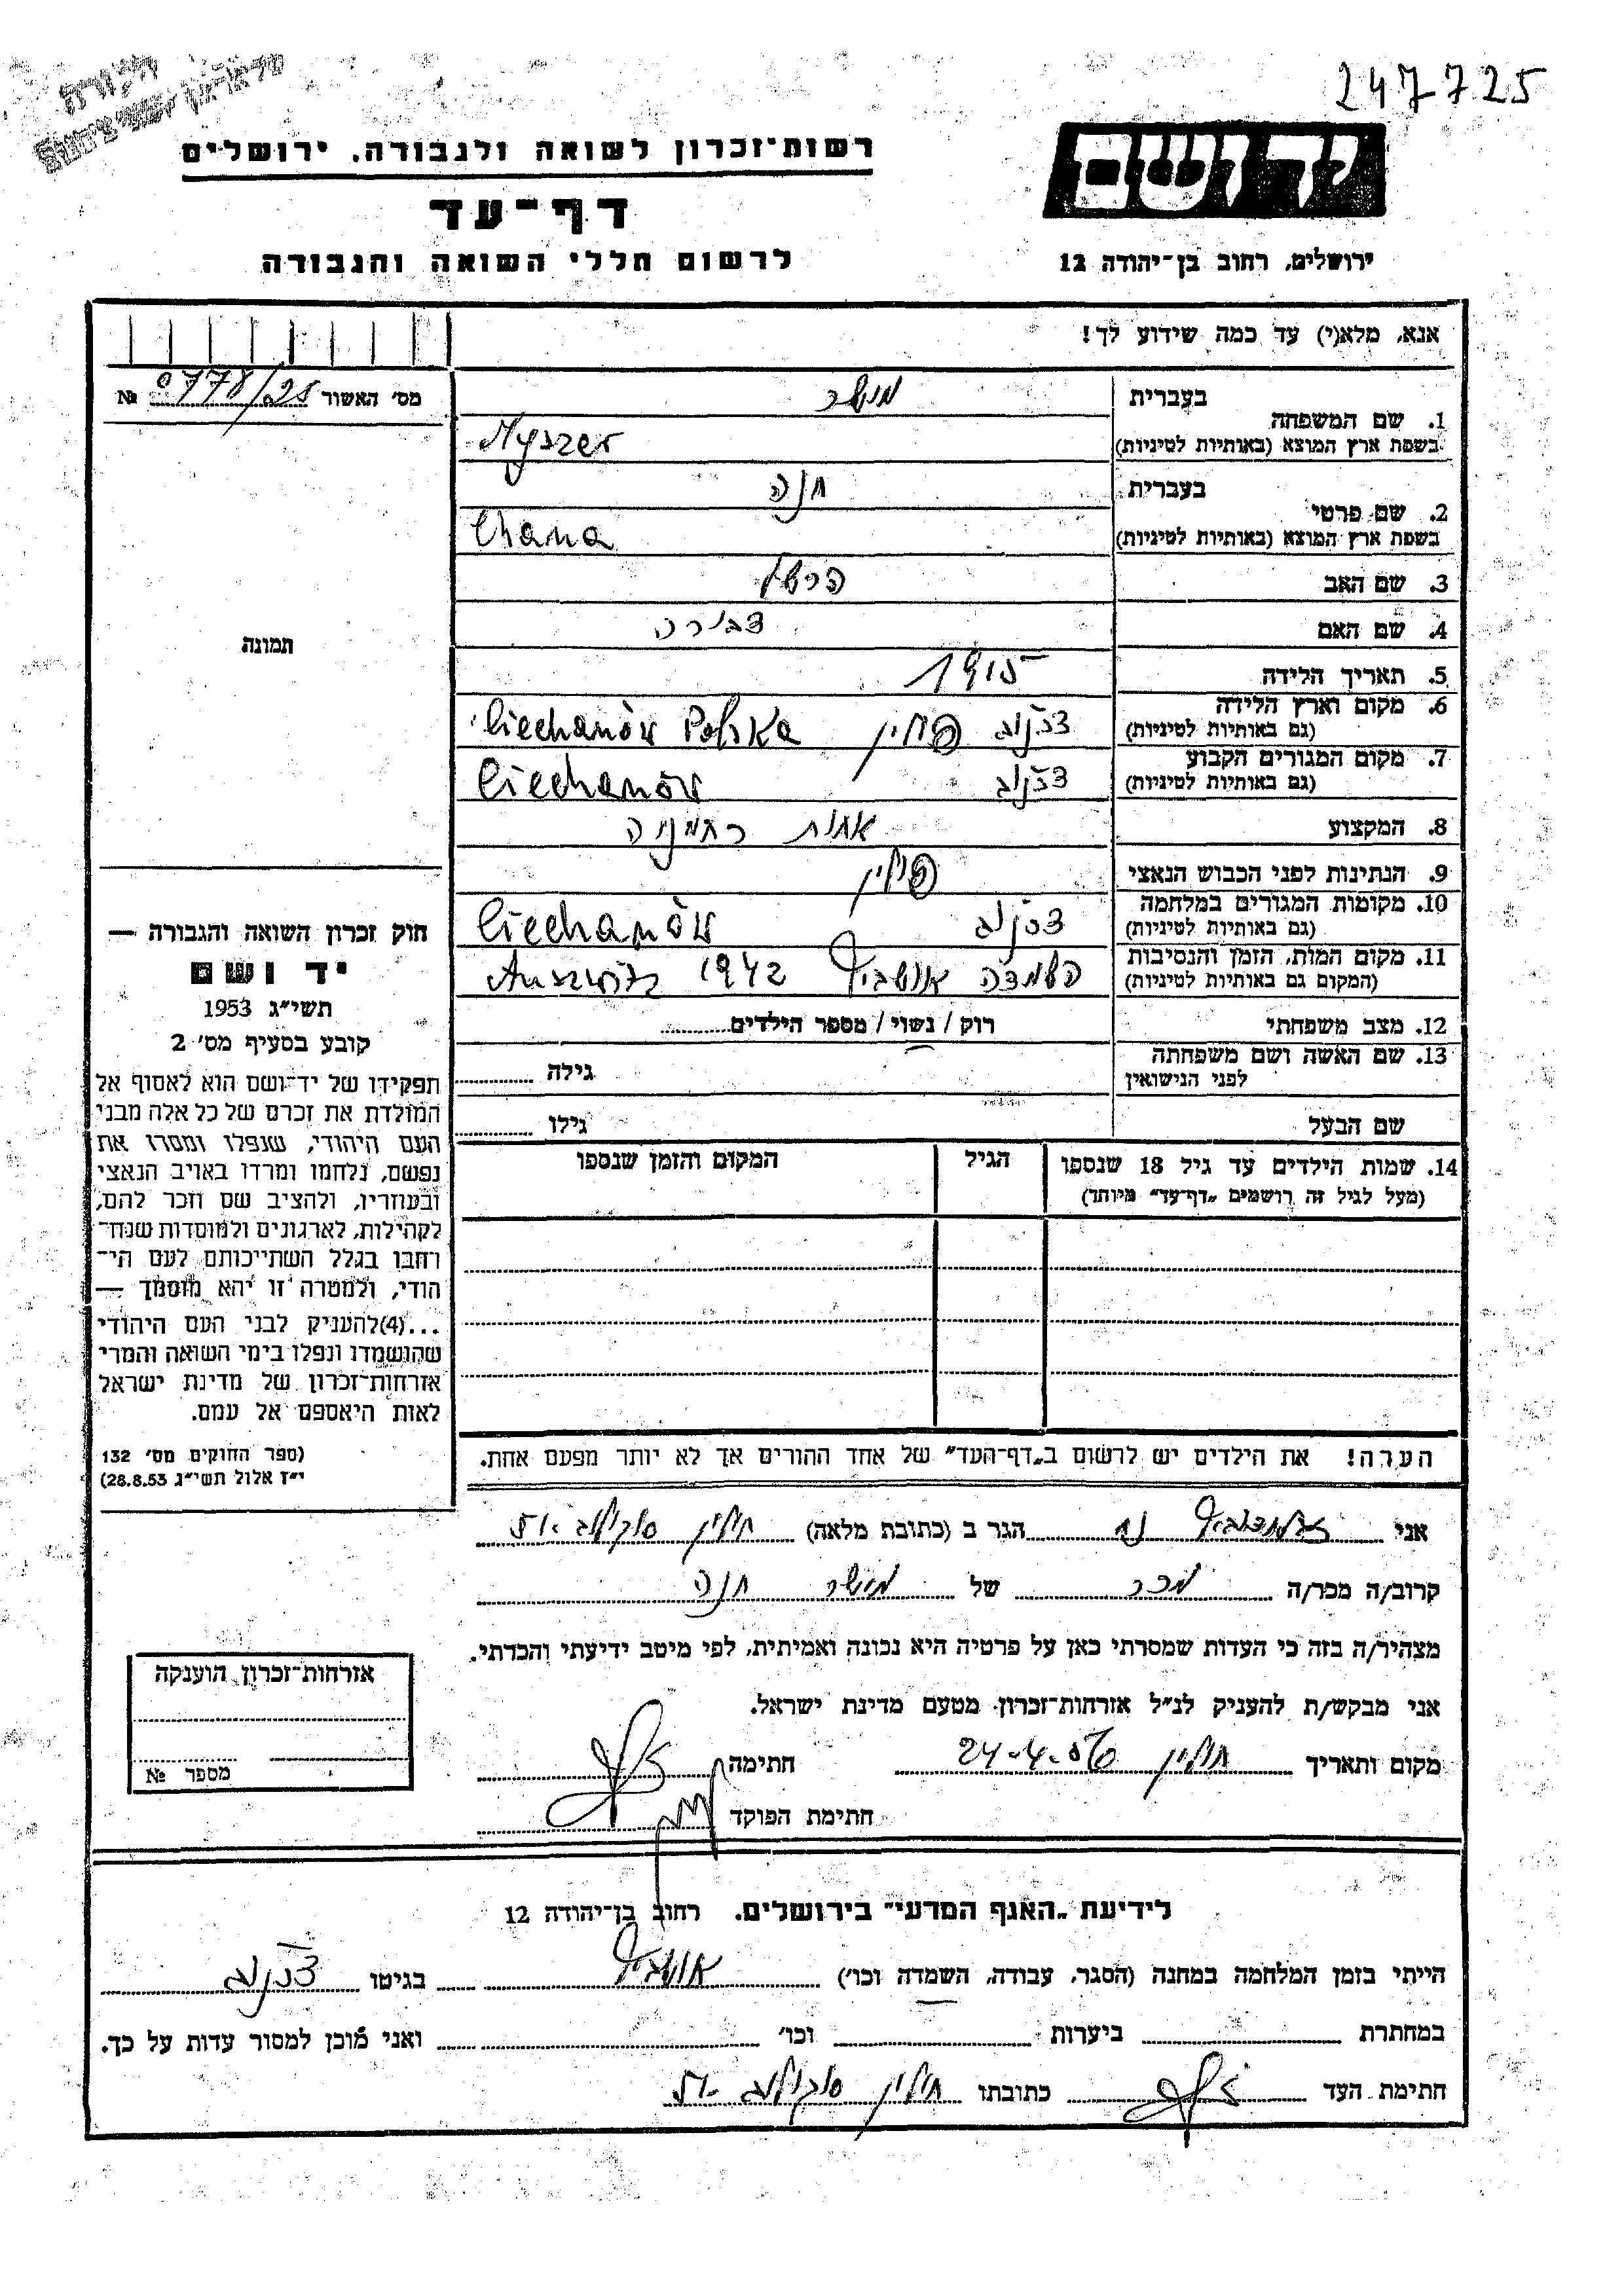 247725
רשות־זכרון לשואה ולגבורה, ירושלים
יד ושם
דף־עד
לרשום חללי השואה והגבורה
ירושלים, רחוב בן־יהודה 12
אנא, מלא(י) עד כמה שידוע לך!
מס' האשור № 0778/25
בעברית מישר
1. שם המשפחה
בשפת ארץ המוצא (באותיות לטיניות) Myszer
בעברית חנה
2. שם פרטי
בשפת ארץ המוצא (באותיות לטיניות) Chana
3. שם האב הרשל
4. שם האם דבורה
5. תאריך הלידה 1915
6. מקום וארץ הלידה
(גם באותיות לטיניות) צכנוב פולין Ciechanów Polska
7. מקום המגורים הקבוע
(גם באותיות לטיניות) צכנוב Ciechanów
8. המקצוע אחות רחמניה
9. הנתינות לפני הכבוש הנאצי פולין
10. מקומות המגורים במלחמה
(גם באותיות לטיניות) צכנוב Ciechanów
11. מקום המות, הזמן והנסיבות
(המקום גם באותיות לטיניות) השמדה אושביץ 1942
12. מצב משפחתי רוק / נשוי / מספר הילדים
13. שם האשה ושם משפחתה
לפני הנישואין גילה
שם הבעל גילו
14. שמות הילדים עד גיל 18 שנספו
(מעל לגיל זה רושמים „דף־עד" מיוחד)
הגיל
המקום והזמן שנספו
הערה! את הילדים יש לרשום ב„דף־העד" של אחד ההורים אך לא יותר מפעם אחת.
תמונה
חוק זכרון השואה והגבורה —
יד ושם
תשי"ג 1953
קובע בסעיף מס' 2
תפקידו של יד־ושם הוא לאסוף אל
המולדת את זכרם של כל אלה מבני
העם היהודי, שנפלו ומסרו את
נפשם, נלחמו ומרדו באויב הנאצי
ובעוזריו, ולהציב שם וזכר להם,
לקהילות, לארגונים ולמוסדות שנח־
רחבו בגלל השתייכותם לעם הי־
הודי, ולמטרה זו יהא מוסמך —
...(4) להעניק לבני העם היהודי
שהושמדו ונפלו בימי השואה והמרי
אזרחות־זכרון של מדינת ישראל
לאות היאספם אל עמם.
(ספר החוקים מס' 132
י"ז אלול תשי"ג 28.8.53)
אני הגר ב (כתובת מלאה) חולין סוקולוב
קרוב/ה מכר/ה מכר של מישר חנה
מצהיר/ה בזה כי העדות שמסרתי כאן על פרטיה היא נכונה ואמיתית, לפי מיטב ידיעתי והכרתי.
אני מבקש/ת להעניק לנ"ל אזרחות־זכרון מטעם מדינת ישראל.
מקום ותאריך חולין 24-4-56 חתימה
חתימת הפוקד
אזרחות־זכרון הוענקה
מספר №
לידיעת „האגף המדעי" בירושלים. רחוב בן־יהודה 12
הייתי בזמן המלחמה במחנה (הסגר, עבודה, השמדה וכו') אושביץ בגיטו צכנוב
במחתרת ביערות וכו' ואני מוכן למסור עדות על כך.
חתימת העד כתובתו חולין סוקולוב